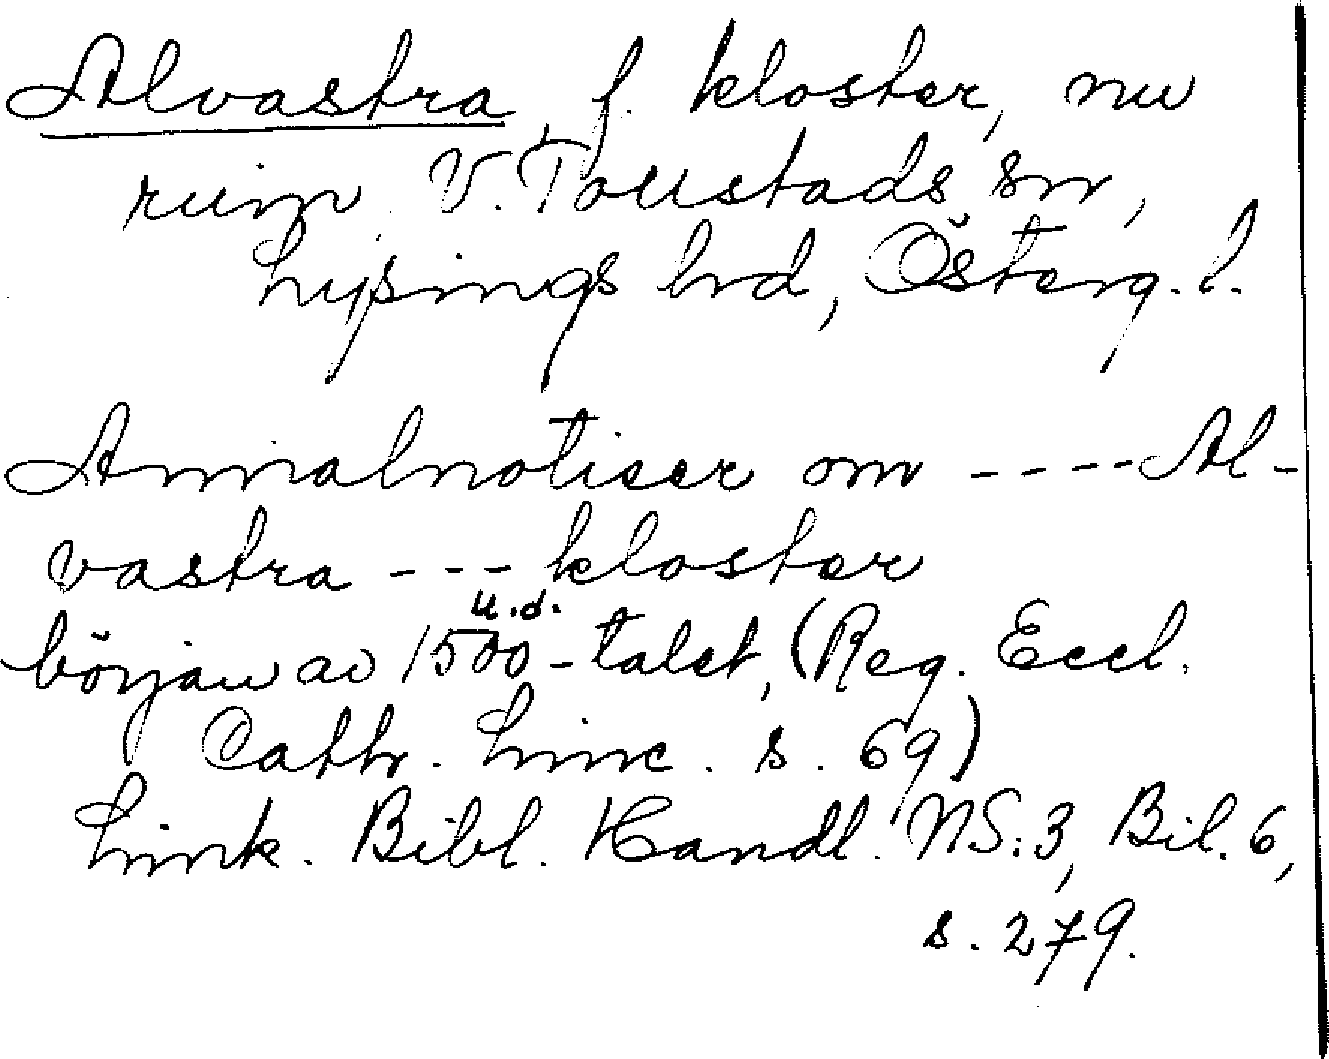 Alvastra, f. kloster, nu
ruin V. Tollstads sn,
Lysings hd, Österg. l.
Annalnotiser om ----Al-
vastra --- kloster
u.d.
början av 1500-talet, (Reg. Eccl.
Cath. Linc. s. 69)
Link. Bibl. Handl. NS:3, Bil. 6,
s. 279.